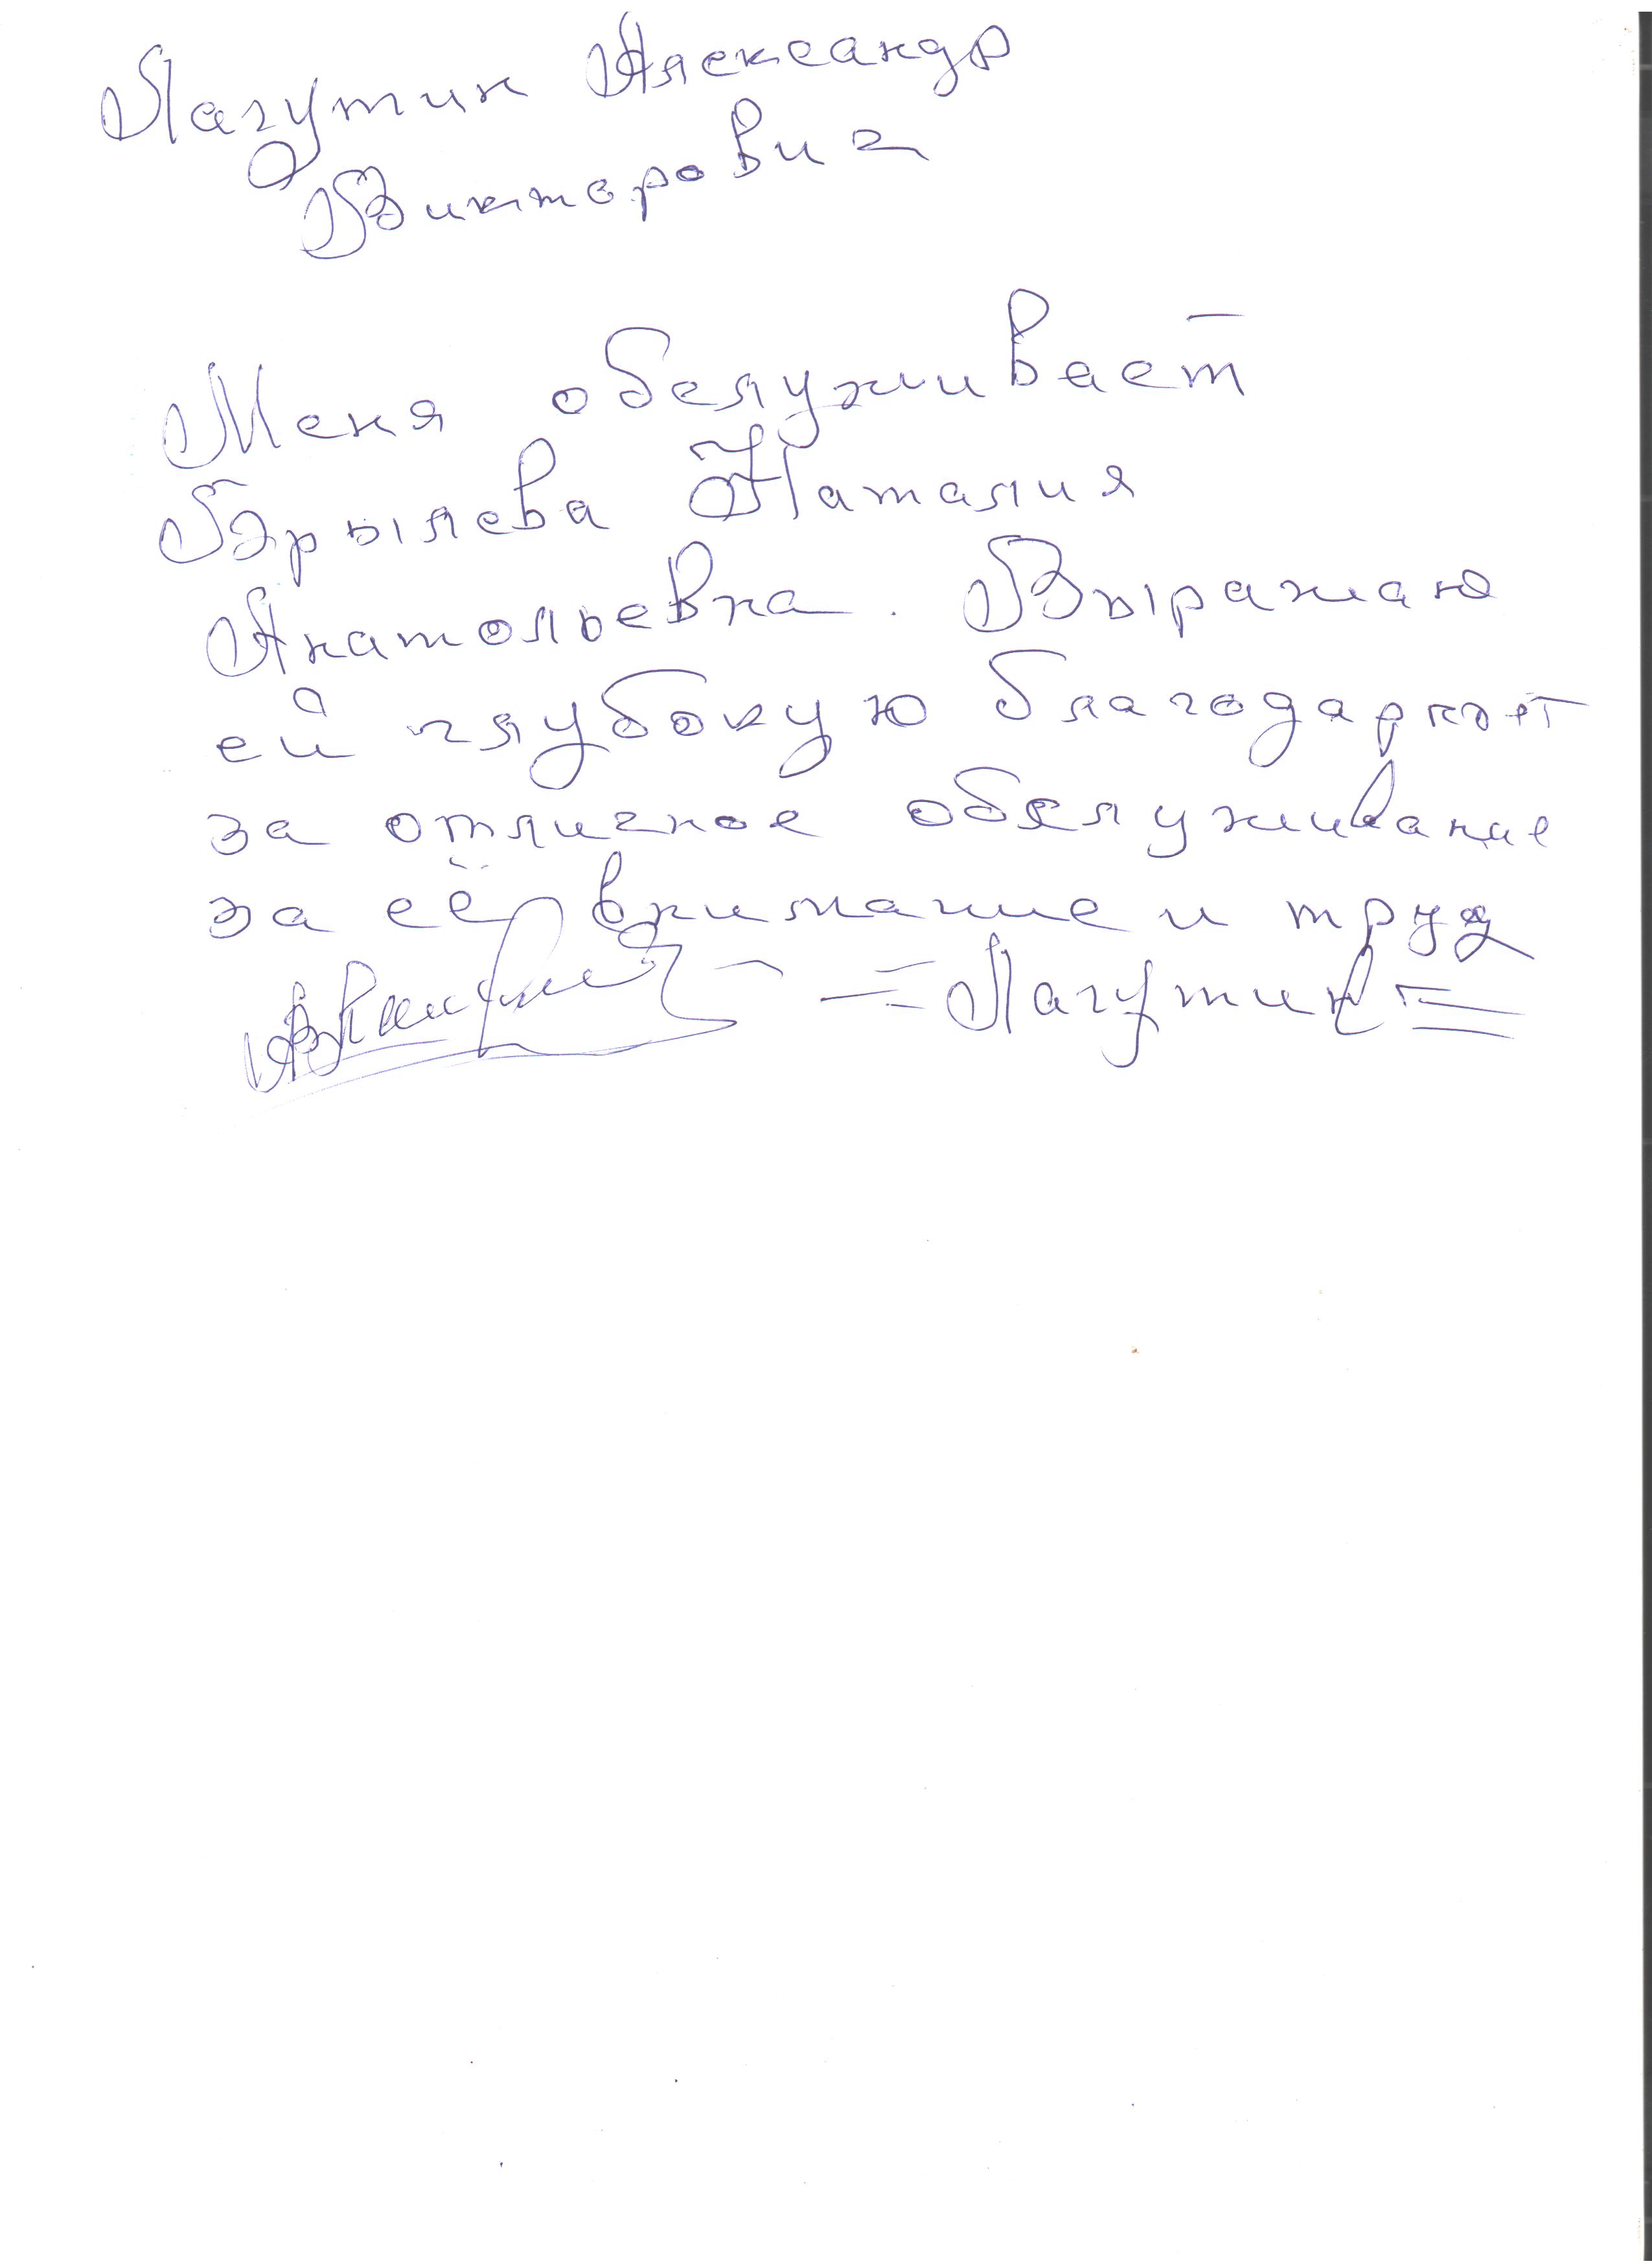 Лагутин Александр
Викторович
Меня обслуживает
Брылева Наталия
Анатольевна. Выражаю
ей глубокую благодарност
за отличное обслуживание
за её внимание и труд
= Лагутин =